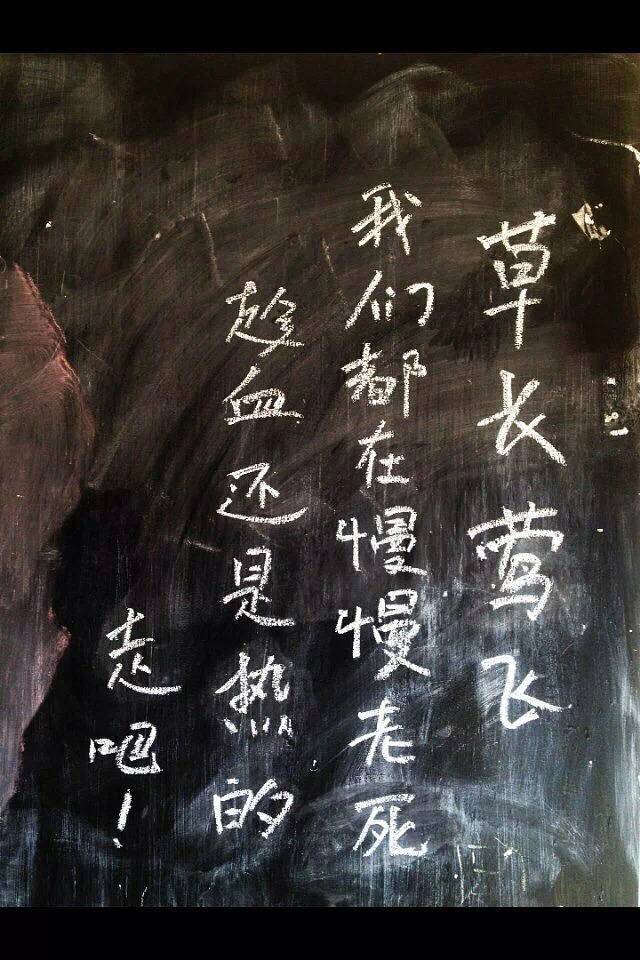 草长莺飞
我们都在慢慢老死
趁血还是热的
走吧！